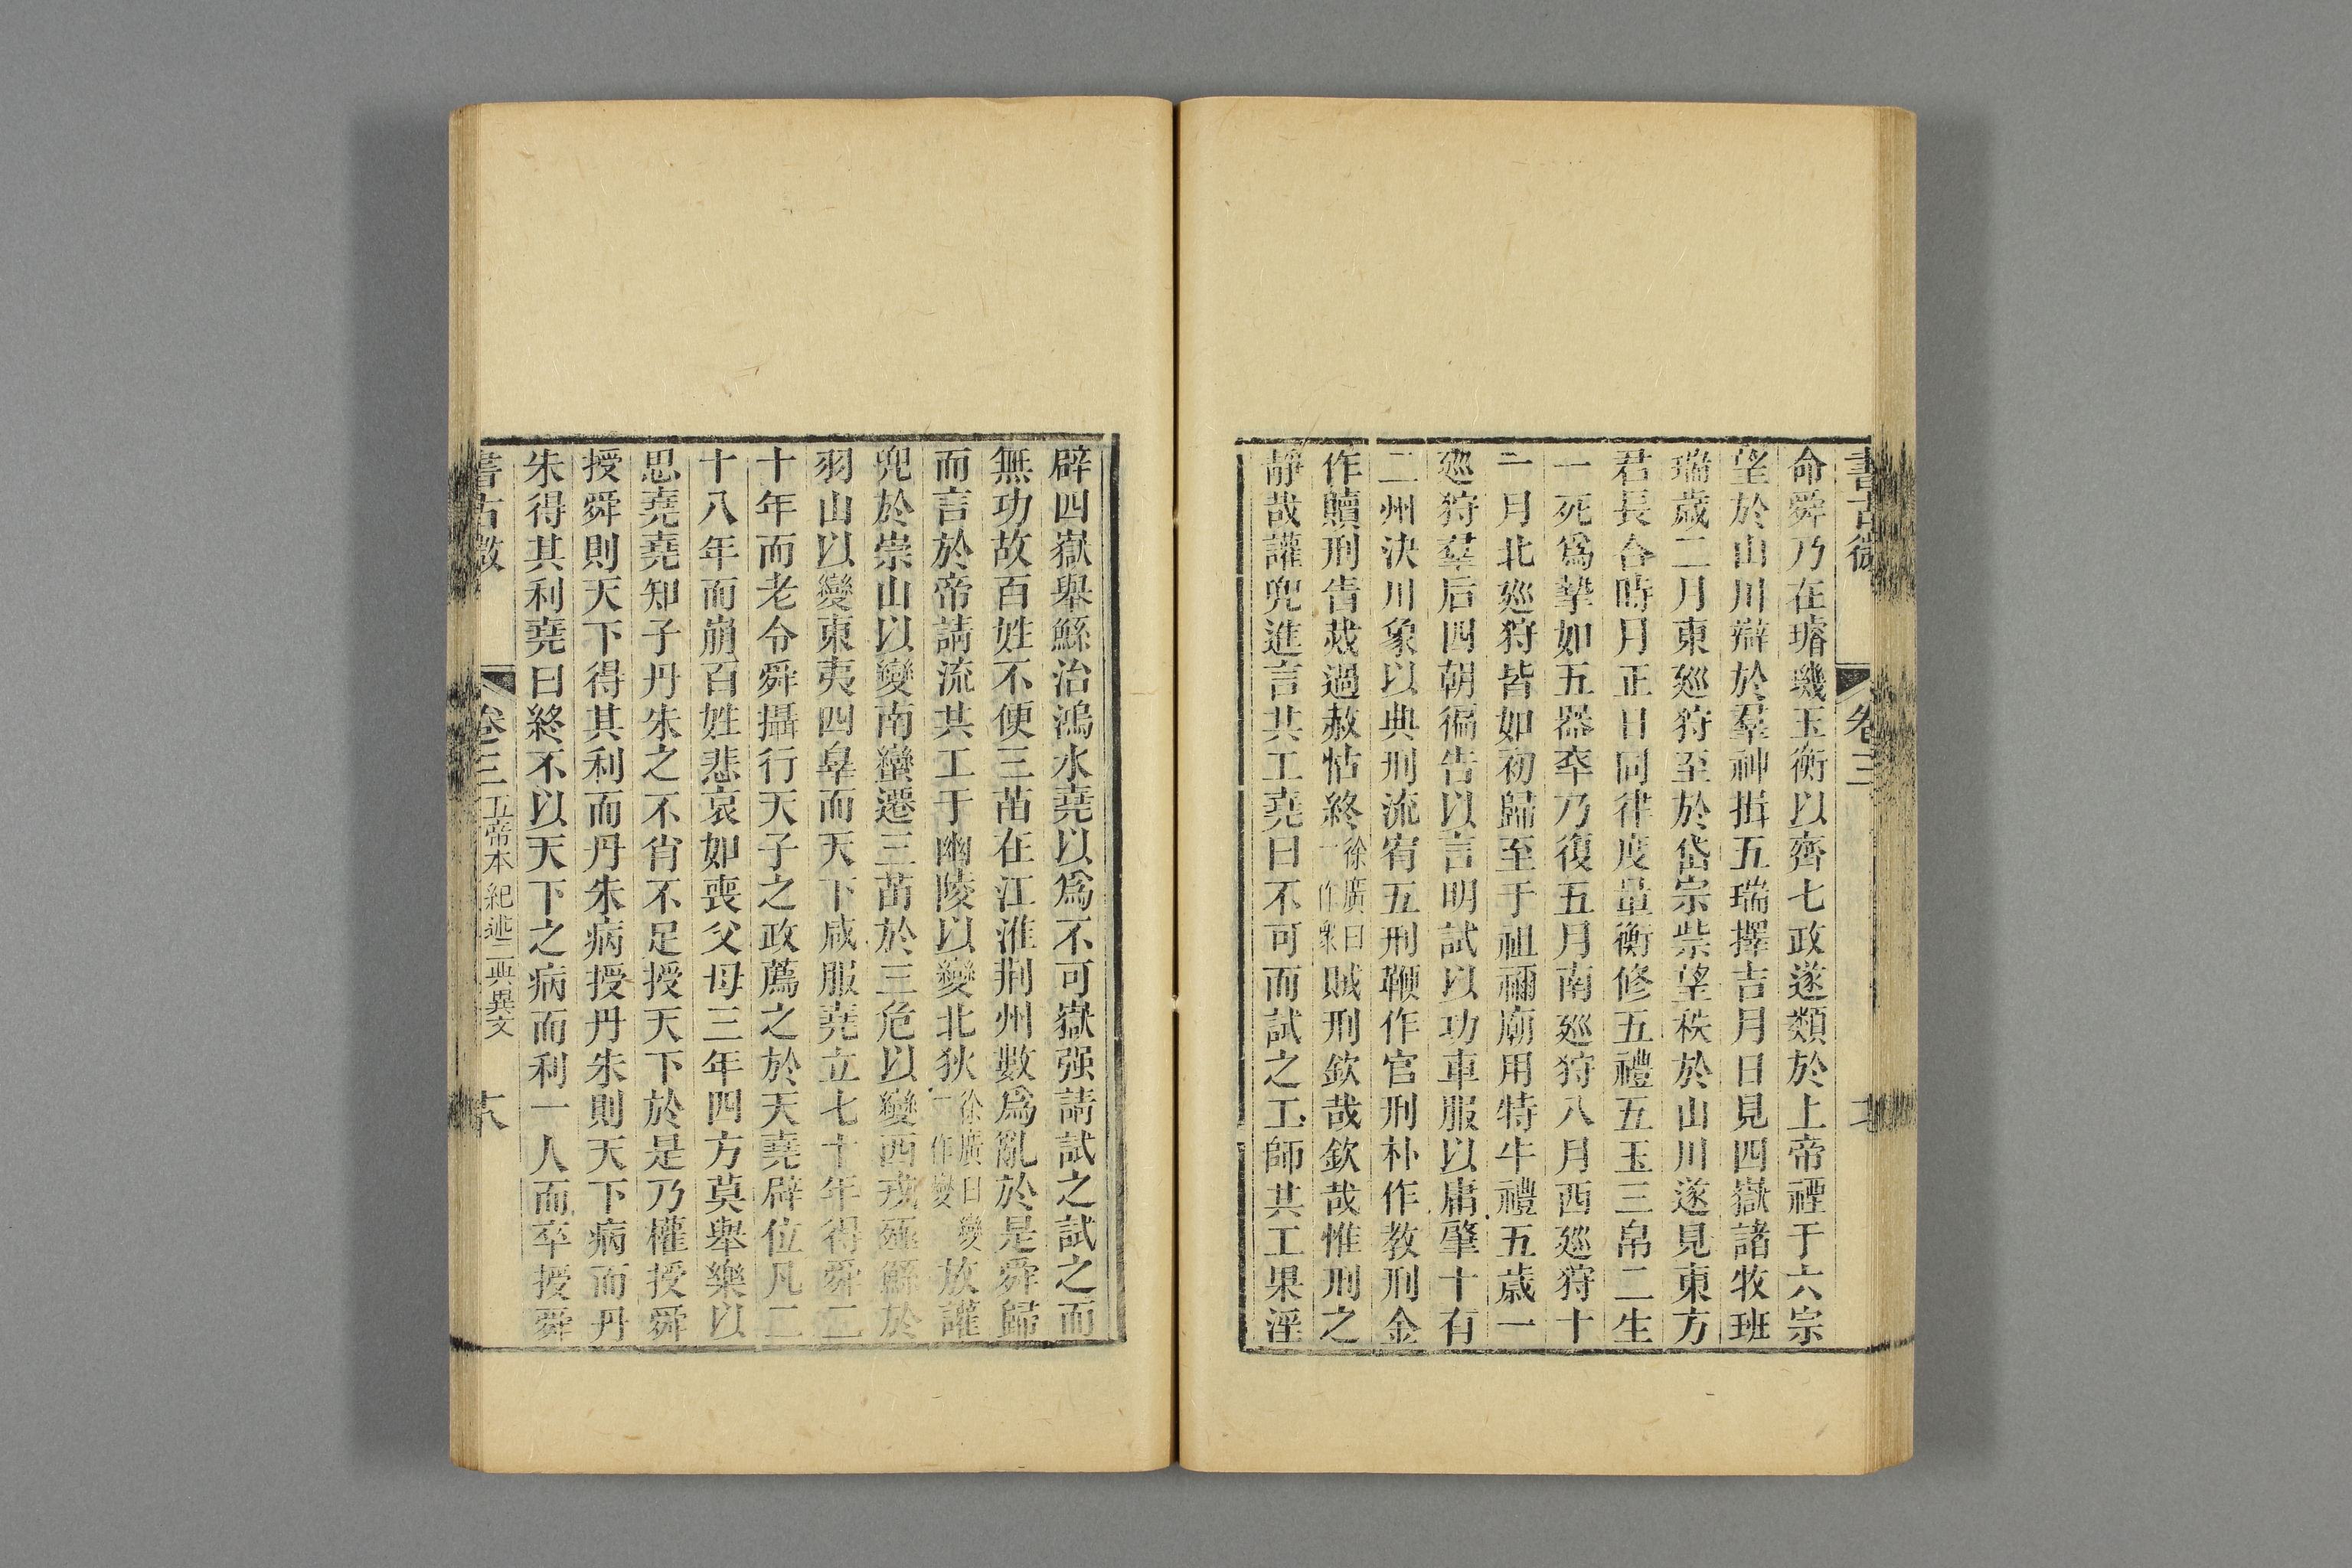 書古微 卷三
命舜乃在璿璣玉衡以齊七政遂類於上帝禋于六宗
望於山川辯於羣神揖五瑞擇吉月日見四嶽諸牧班
瑞歲二月東廵狩至於岱宗祡望秩於山川遂見東方
君長合時月正日同律度量衡修五禮五玉三帛二生
一死爲摯如五器卒乃復五月南廵狩八月西廵狩十
一月北廵狩皆如初歸至于祖禰廟用特牛禮五歲一
廵狩羣后四朝徧告以言明試以功車服以庸肇十有
二州決川象以典刑流宥五刑鞭作官刑朴作教刑金
作贖刑眚烖過赦怙終徐廣曰一作衆賊刑欽哉欽哉惟刑之
靜哉讙兜進言共工堯曰不可而試之工師共工果淫
辟四嶽舉鯀治鴻水堯以爲不可嶽强請試之試之而
無功故百姓不便三苗在江淮荆州數爲亂於是舜歸
而言於帝請流共工于幽陵以變北狄徐廣曰變一作燮放讙
兜於崇山以變南蠻遷三苗於三危以變西戎殛鯀於
羽山以變東夷四辠而天下咸服堯立七十年得舜二
十年而老令舜攝行天子之政薦之於天堯辟位凡二
十八年而崩百姓悲哀如喪父母三年四方莫舉樂以
思堯堯知子丹朱之不肖不足授天下於是乃權授舜
授舜則天下得其利而丹朱病授丹朱則天下病而丹
朱得其利堯曰終不以天下之病而利一人而卒授舜
書古微 卷三 五帝本紀述二典異文 六